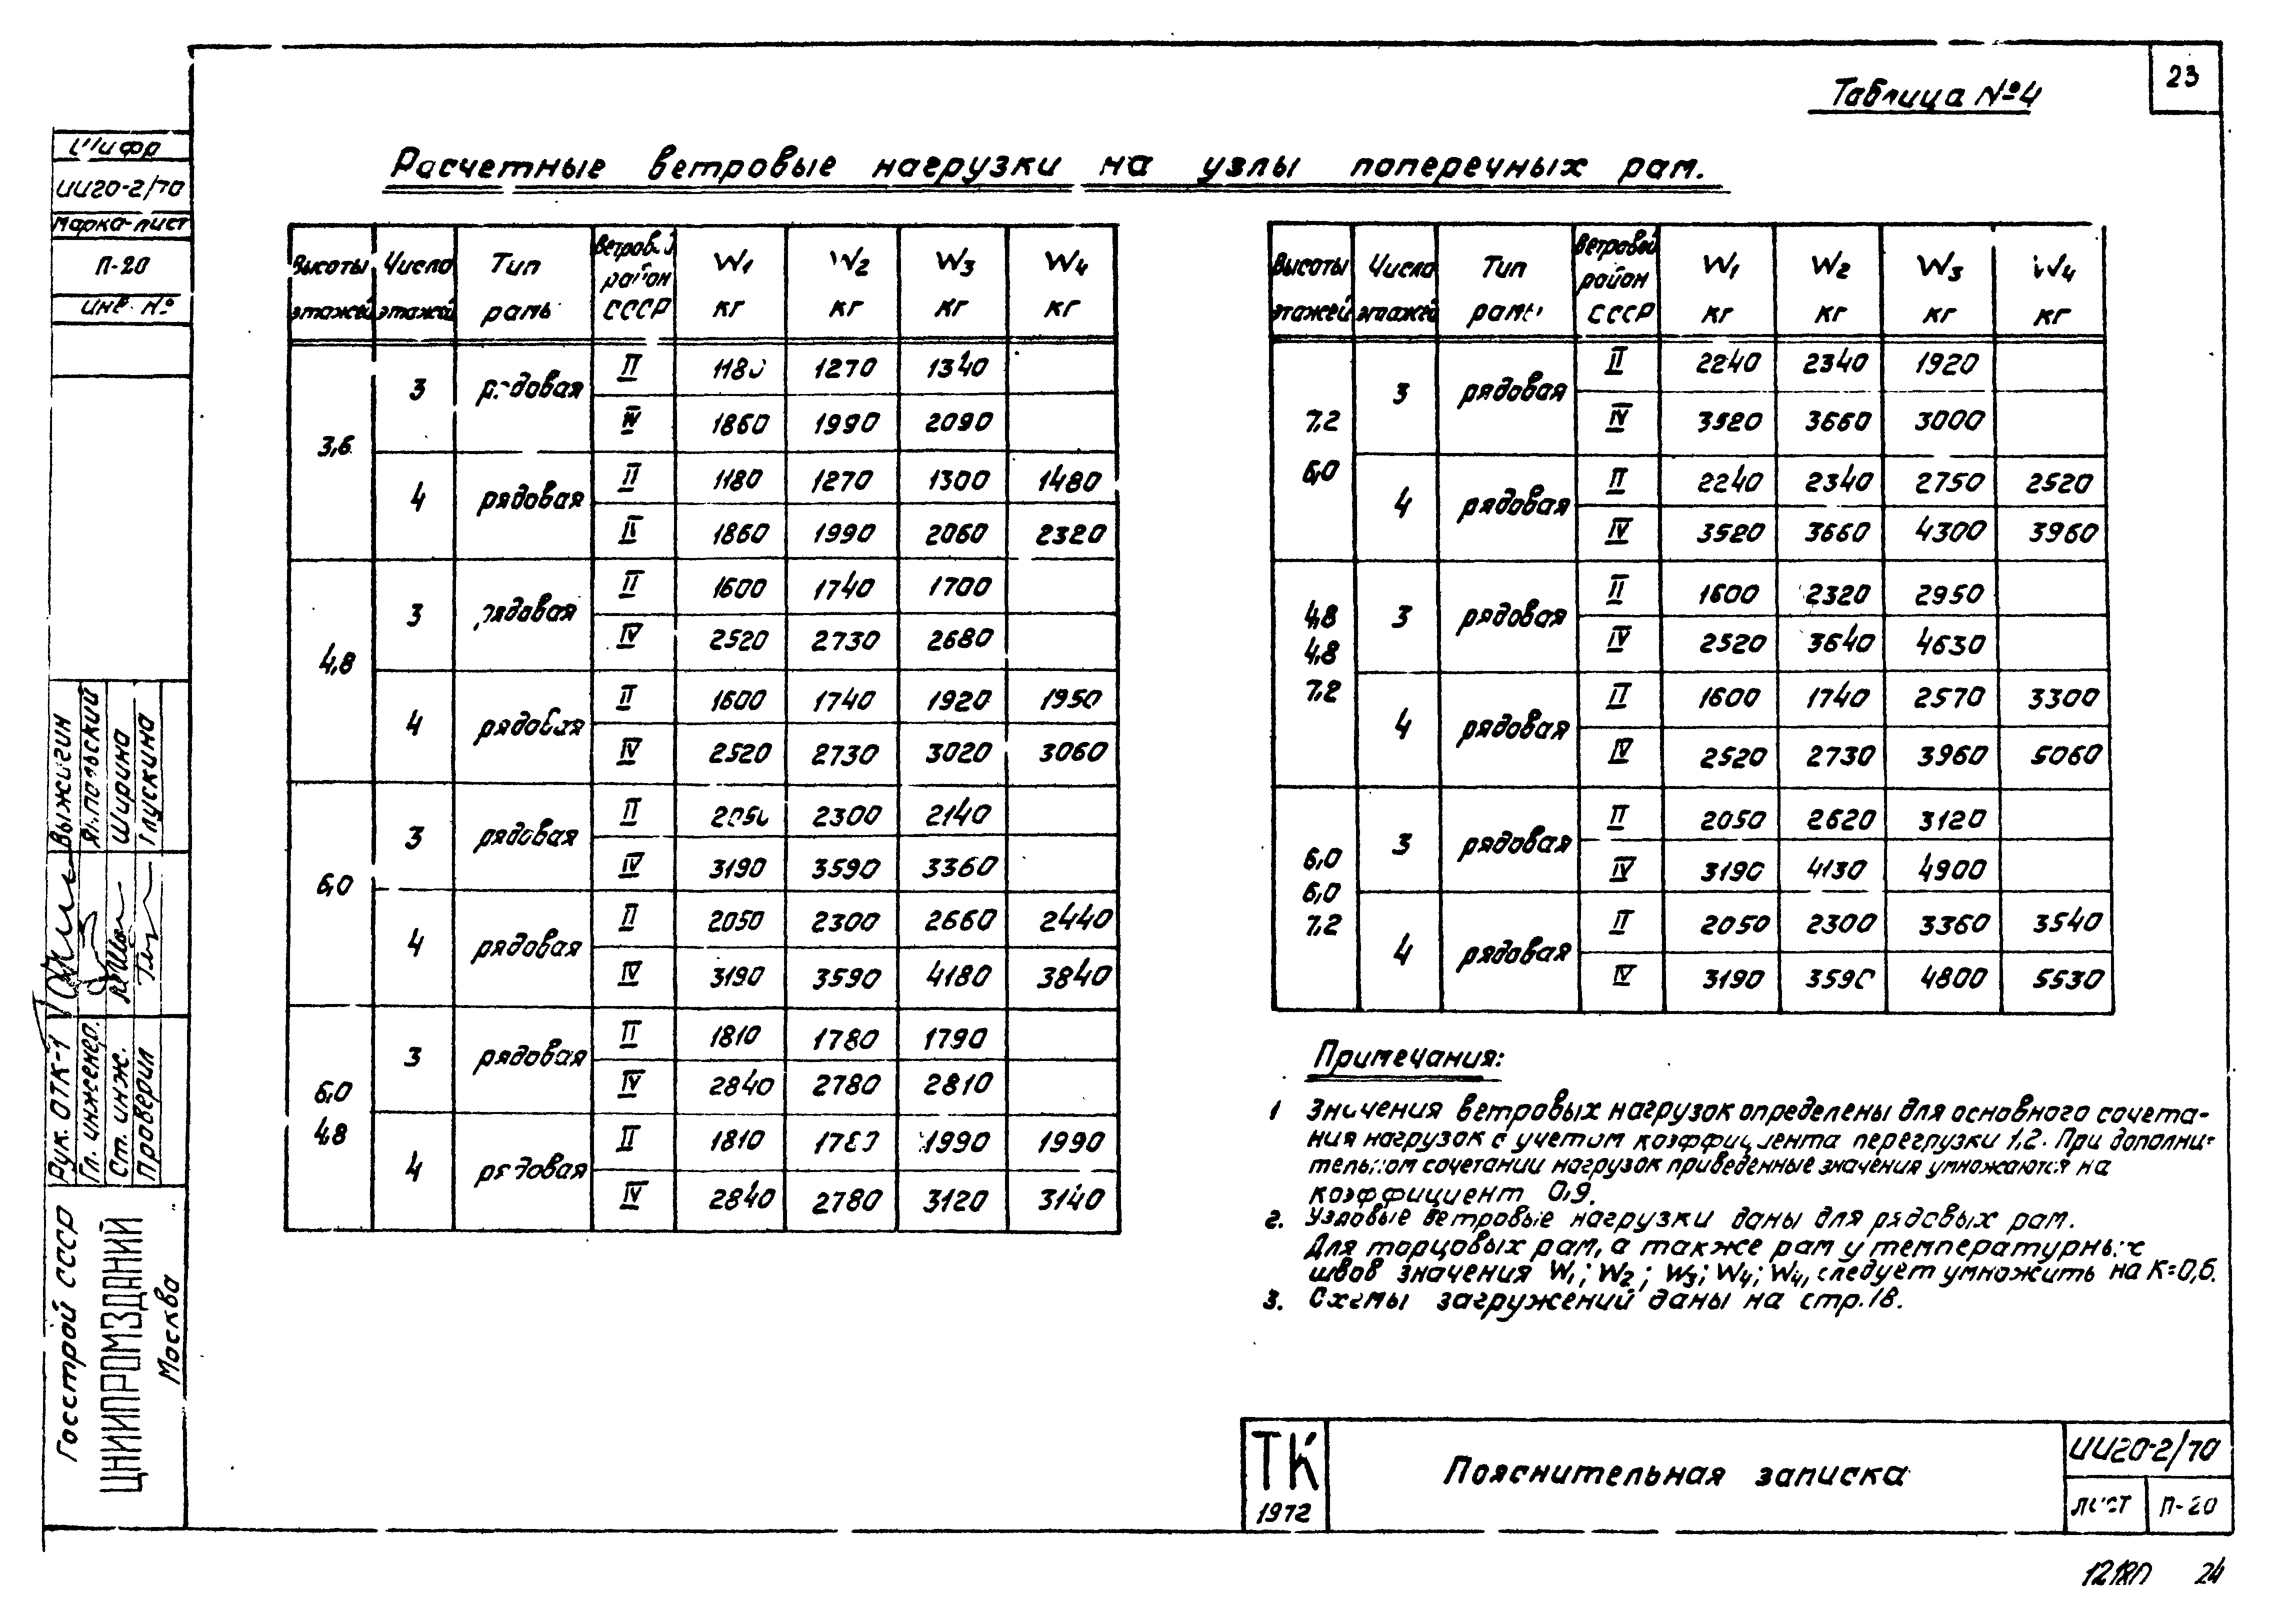 23
Таблица №4
Расчетные ветровые нагрузки на узлы поперечных рам.
Шифр
ИИ20-2/70
Марка-лист
П-20
Инв. №
Высоты этажей Число этажей Тип рамы Ветров. район СССР W1 кг W2 кг W3 кг W4 кг
3,6 3 рядовая II 1180 1270 1340
IV 1860 1990 2090
4 рядовая II 1180 1270 1300 1480
IV 1860 1990 2060 2320
4,8 3 рядовая II 1600 1740 1700
IV 2520 2730 2680
4 рядовая II 1600 1740 1920 1950
IV 2520 2730 3020 3060
6,0 3 рядовая II 2050 2300 2140
IV 3190 3590 3360
4 рядовая II 2050 2300 2660 2440
IV 3190 3590 4180 3840
6,0 4,8 3 рядовая II 1810 1780 1790
IV 2840 2780 2810
4 рядовая II 1810 1780 1990 1990
IV 2840 2780 3120 3140
Высоты этажей Число этажей Тип рамы Ветровой район СССР W1 кг W2 кг W3 кг W4 кг
7,2 6,0 3 рядовая II 2240 2340 1920
IV 3520 3660 3000
4 рядовая II 2240 2340 2750 2520
IV 3520 3660 4300 3960
4,8 4,8 7,2 3 рядовая II 1600 2320 2950
IV 2520 3640 4630
4 рядовая II 1600 1740 2570 3300
IV 2520 2730 3960 5060
6,0 6,0 7,2 3 рядовая II 2050 2620 3120
IV 3190 4130 4900
4 рядовая II 2050 2300 3360 3540
IV 3190 3590 4800 5530
Примечания:
1 Значения ветровых нагрузок определены для основного сочета-
ния нагрузок с учетом коэффициента перегрузки 1,2. При дополни-
тельном сочетании нагрузок приведенные значения умножаются на
коэффициент 0,9.
2. Узловые ветровые нагрузки даны для рядовых рам.
Для торцовых рам, а также рам у температурных
швов значения W1; W2; W3; W4; W4, следует умножить на К=0,6.
3. Схемы загружений даны на стр.18.
Рук. ОТК-1 Выжигин
Гл. инженер. Ямпольский
Ст. инж. Ширина
Проверил Глускина
Госстрой СССР
ЦНИИПРОМЗДАНИЙ
Москва
ТК
1972
Пояснительная записка
ИИ20-2/70
лист П-20
12180 24